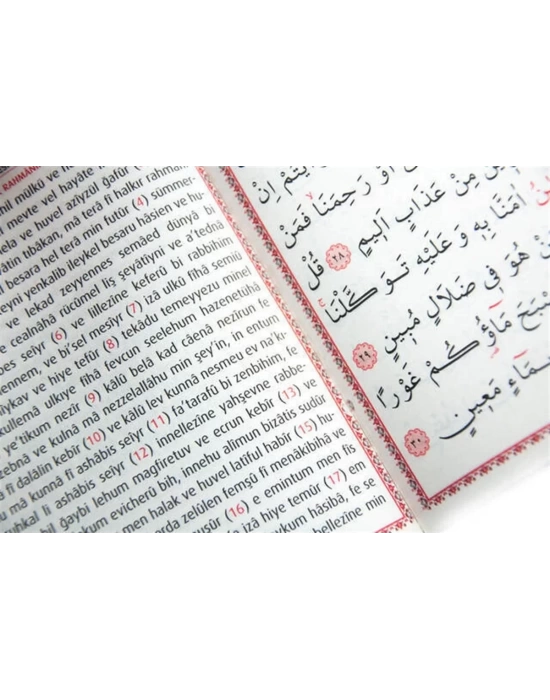 RAHMAN
mülkü ve
meyte vel hayate
ve huvel azîyzül gafûr
tıbâkan, mâ terâ fî halkır rahmân
besara hel terâ min futûr (4) sümmer-
yenkalib ileykel besaru hâsien ve hu-
ve lekad zeyyennes semâed dünyâ bi
cealnâhâ rücûmel liş şeyâtiyni ve a'tednâ
seiyr (6) ve lillezîne keferû bi rabbihim
ve bi'sel mesiyr (7) izâ ulkû fîhâ semiû
ve hiye tefûr (8) tekâdu temeyyezu minel
kullemâ ulkıye fîhâ fevcun seelehum hazenetühâ
e'tikum nezîr (9) kâlû belâ kad câenâ nezîrun fe
ve kulnâ mâ nezzelallâhu min şey'in, in entum
fî dalâlin kebîr (10) ve kâlû lev kunnâ nesmeu ev na'k-
mâ kunnâ fî ashâbis seiyr (11) fa'terafû bi zenbihim, fe
suhkal li ashâbis seiyr (12) innellezîne yahşevne rabbe-
bil ğaybi lehum mağfiretuv ve ecrun kebîr (13) ve
evicherû bih, innehu alîmun bizâtis sudûr
men halak ve huvel latîful habîr (15) hu-
arda zelûlen femşû fî menâkibihâ ve
nuşûr (16) e emintum men fîs
izâ hiye temûr (17) em
aleykum hâsibâ, fe se
bellezîne min
اَوْ رَحِمَنَا فَمَنْ
مِنْ عَذَابٍ اَلِيمٍ ٢٨ قُلْ
اٰمَنَّا بِهٖ وَ عَلَيْهِ تَوَكَّلْنَا
هُوَ فِى ضَلَالٍ مُبِينٍ ٢٩
مَاؤُكُمْ غَوْرًا
مَعِينٍ ٣٠